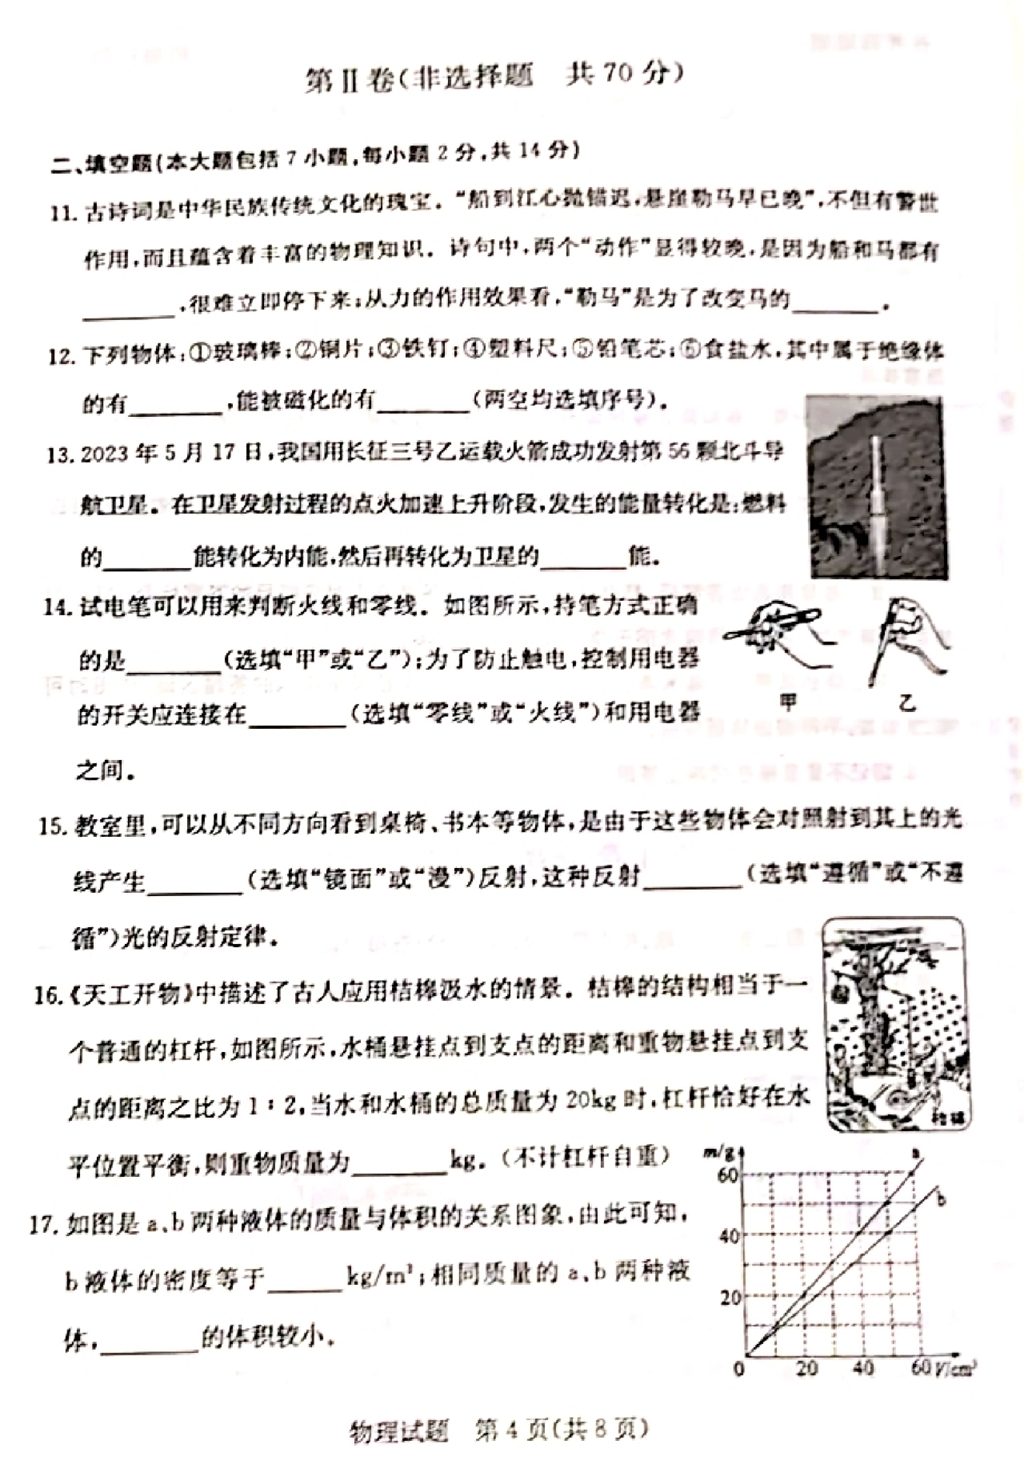 第Ⅱ卷(非选择题 共70分)
二、填空题(本大题包括7小题,每小题2分,共14分)
11. 古诗词是中华民族传统文化的瑰宝。“船到江心抛锚迟,悬崖勒马早已晚”,不但有警世
作用,而且蕴含着丰富的物理知识。诗句中,两个“动作”显得较晚,是因为船和马都有
________,很难立即停下来;从力的作用效果看,“勒马”是为了改变马的________。
12. 下列物体:①玻璃棒;②铜片;③铁钉;④塑料尺;⑤铅笔芯;⑥食盐水,其中属于绝缘体
的有________,能被磁化的有________(两空均选填序号)。
13. 2023年5月17日,我国用长征三号乙运载火箭成功发射第56颗北斗导
航卫星。在卫星发射过程的点火加速上升阶段,发生的能量转化是:燃料
的________能转化为内能,然后再转化为卫星的________能。
14. 试电笔可以用来判断火线和零线。如图所示,持笔方式正确
的是________(选填“甲”或“乙”);为了防止触电,控制用电器
的开关应连接在________(选填“零线”或“火线”)和用电器
之间。
甲 乙
15. 教室里,可以从不同方向看到桌椅、书本等物体,是由于这些物体会对照射到其上的光
线产生________(选填“镜面”或“漫”)反射,这种反射________(选填“遵循”或“不遵
循”)光的反射定律。
16.《天工开物》中描述了古人应用桔槔汲水的情景。桔槔的结构相当于一
个普通的杠杆,如图所示,水桶悬挂点到支点的距离和重物悬挂点到支
点的距离之比为1:2,当水和水桶的总质量为20kg时,杠杆恰好在水
平位置平衡,则重物质量为________kg。(不计杠杆自重)
桔槔
17. 如图是a、b两种液体的质量与体积的关系图象,由此可知,
b液体的密度等于______kg/m³;相同质量的a、b两种液
体,________的体积较小。
m/g
60
40
20
0 20 40 60 V/cm³
a
b
物理试题 第4页(共8页)